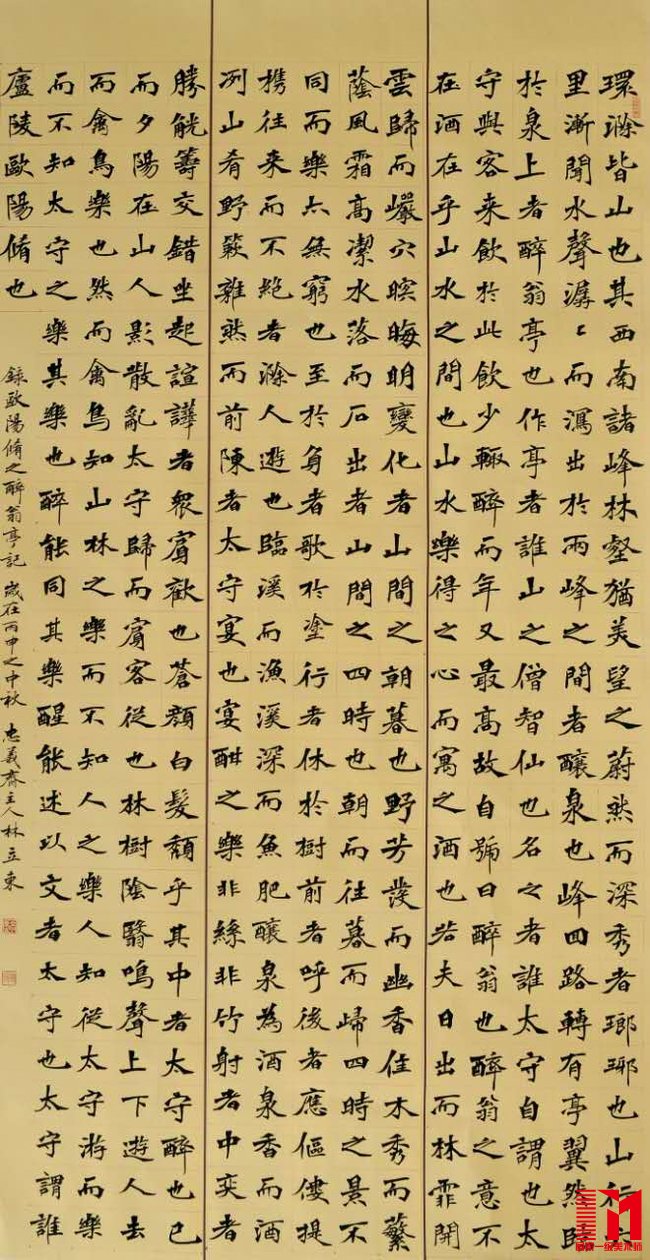 環滁皆山也其西南諸峰林壑猶美望之蔚然而深秀者瑯琊也山行六
里漸聞水聲潺〻而瀉出於兩峰之間者釀泉也峰回路轉有亭翼然臨
於泉上者醉翁亭也作亭者誰山之僧智仙也名之者誰太守自謂也太
守與客來飲於此飲少輒醉而年又最高故自號曰醉翁也醉翁之意不
在酒在乎山水之間也山水樂得之心而寓之酒也若夫日出而林霏開
雲歸而巖穴暝晦明變化者山間之朝暮也野芳發而幽香佳木秀而蘩
蔭風霜高潔水落而石出者山間之四時也朝而往暮而歸四時之景不
同而樂亦無窮也至於負者歌於塗行者休於樹前者呼後者應傴僂提
携往來而不絕者滁人遊也臨溪而漁溪深而魚肥釀泉為酒泉香而酒
冽山肴野蔌雜然而前陳者太守宴也宴酣之樂非絲非竹射者中奕者
勝觥籌交錯坐起諠譁者眾賓歡也蒼顏白髮頹乎其中者太守醉也已
而夕陽在山人影散亂太守歸而賓客從也林樹陰翳鳴聲上下遊人去
而禽鳥樂也然而禽鳥知山林之樂而不知人之樂人知從太守游而樂
而不知太守之樂其樂也醉能同其樂醒能述以文者太守也太守謂誰
廬陵歐陽脩也
錄歐陽脩之醉翁亭記 歲在丙申之中秋 忠義齋主人林立東